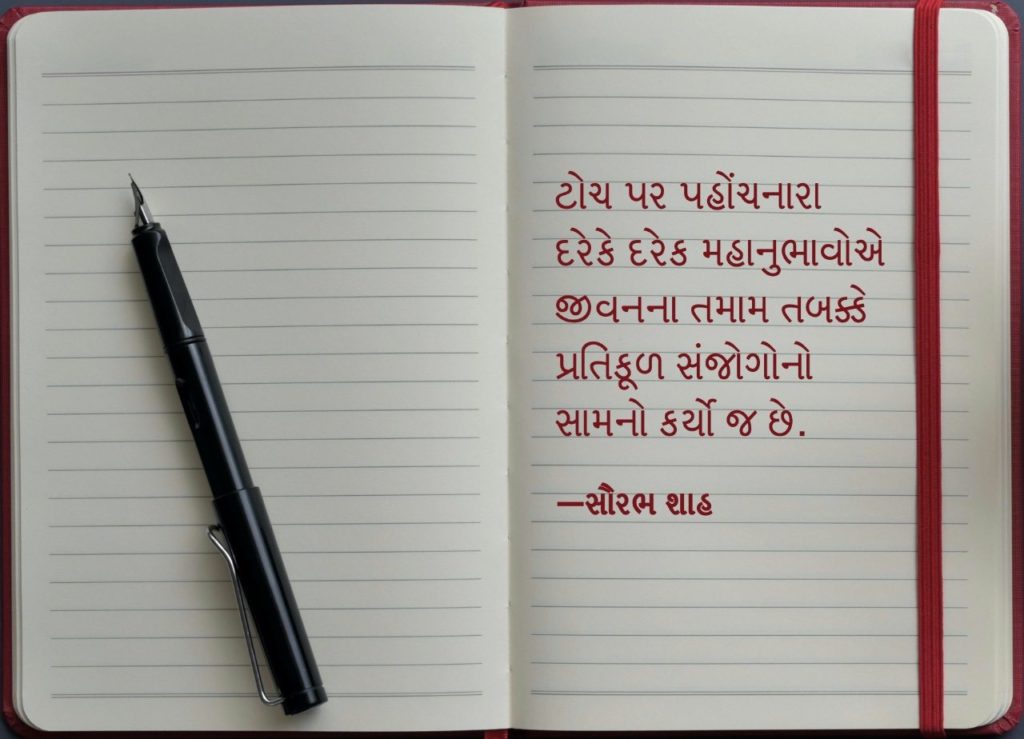 ટોચ પર પહોંચનારા
દરેકે દરેક મહાનુભાવોએ
જીવનના તમામ તબક્કે
પ્રતિકૂળ સંજોગોનો
સામનો કર્યો જ છે.
—સૌરભ શાહ